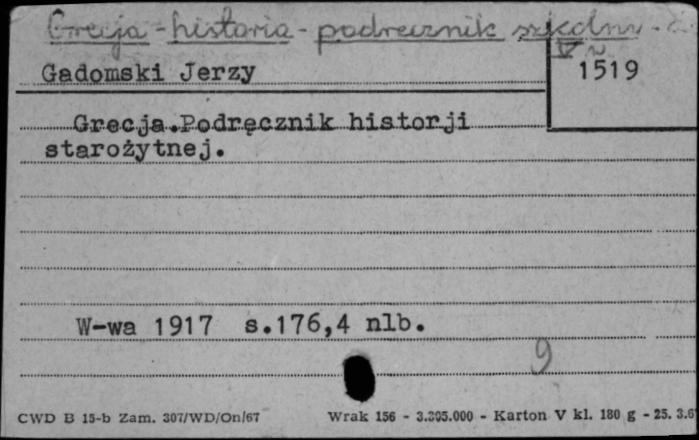 Grecja - historia - podręcznik szkolny -
V
Gadomski Jerzy
1519
Grecja.Podręcznik historji
starożytnej.
W-wa 1917 s.176,4 nlb.
9
CWD B 15-b Zam. 307/WD/On/67 Wrak 156 - 3.395.000 - Karton V kl. 180 g - 25. 3.6